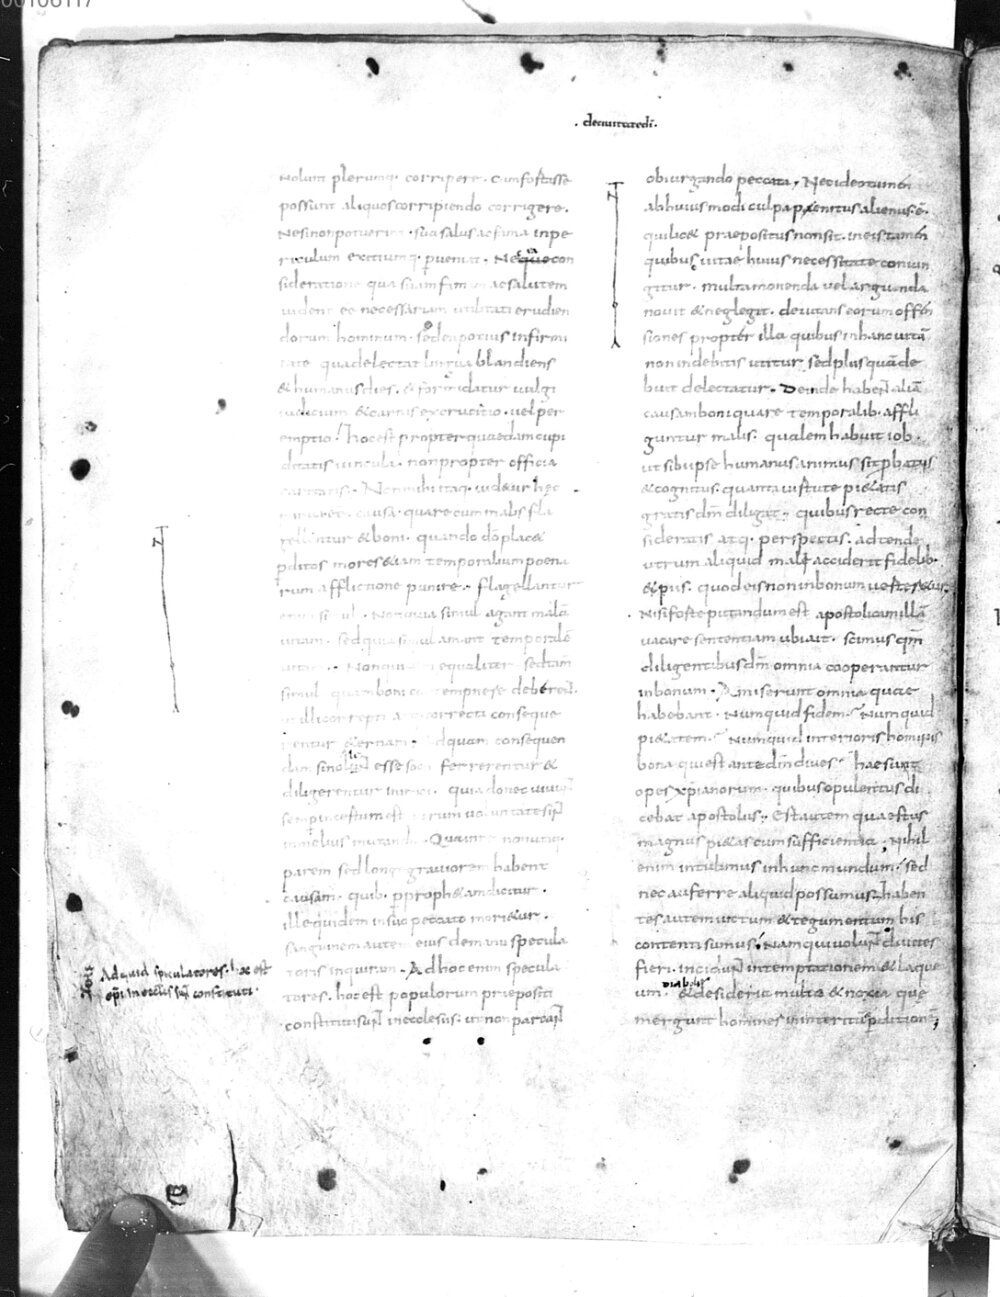 00106117
· deciuitatedī ·
nolunt plerumq· corripere · cum fortasse
possunt aliquos corripiendo corrigere ·
Ne si non potuerint · sua salus ac fama in pe
riculum exitiumq· perueniat · Nequecon
sideratione qua suam famam ac salutem
uident ee necessariam utilitati erudien
dorum hominum · sed en potius infirmi
tate qua delectat lingua blandiens
& humanus dies · & formidatur uulgi
iudicium & carnis excruciatio · uel per
emptio · hoc est propter quaedam cupi
ditatis uincula · non propter officia
caritatis · Non mihi itaq· uidetur hęc
causa · quare cum malis fla
gellentur & boni · quando dō placet
pditos mores etiam temporalium poena
rum afflictione punire · flagellantur
enim simul · Non quia simul agant malā
uitam · sed quia simul amant temporalē
uitam · Non quidem equaliter sed tam̄
simul quam boni contempnere deberent ·
ut illi correpti atq· correcti conseque
rentur eternam · ad quam consequen
dam si nollent esse socii ferrerentur &
diligerentur inimici · quia donec uiuunt
semp incertum est utrum uoluntate sint
in melius mutandi · Qua in re non utiq·
parem sed longe grauiorem habent
causam · quib· p prophetam dicitur ·
ille quidem in suo peccato morietur ·
sanguinem autem eius de manu specula
toris inquiram · Ad hoc enim specula
tores · hoc est populorum praepositi
constituti sunt in ecclesiis · ut non parcant
Ad quid speculatores · hoc est
epī in ecclesiis sunt constituti ·
obiurgando peccata · Nec ideo tamen
ab huiusmodi culpa penitus alienus · ē ·
qui licet praepositus non sit · in eis tamen
quibus uitae huius necessitate coniun
gitur · multa monenda uel arguenda
nouit & neglegit · deuitans eorum offen
siones propter illa quibus in hac uitā
non indebitis utitur · sed plus quā de
buit delectatur · Deinde habent aliā
causam boni quare temporalib· affli
guntur malis · qualem habuit iob ·
ut sibi ipse humanus animus sit pbatus
& cognitus · quanta uirtute pietatis
gratis dm̄ diligat · quibus recte con
sideratis atq· perspectis · adtende
utrum aliquid mali acciderit fidelib·
& piis · quod eis non in bonum uerteretur ·
Nisi forte putandum est apostolicam illā
uacare sententiam ubi ait · scimus qm̄
diligentibus dm̄ omnia cooperantur
in bonum · Amiserunt omnia quae
habebant · Numquid fidem · Numquid
pietatem · Numquid interioris hominis
bona qui est ante dm̄ diues · hae sunt
opes xp̄ianorum · quibus opulentus di
cebat apostolus · Est autem quaestus
magnus pietas cum sufficientia · Nihil
enim intulimus in hunc mundum · sed
nec auferre aliquid possumus · haben
tes autem uictum & tegumentum his
contenti sumus · Nam qui uolunt diuites
fieri · incidunt in temptationem & laque
diaboli
um · & desideria multa & noxia que
mergunt homines in interitū & pditionē ;